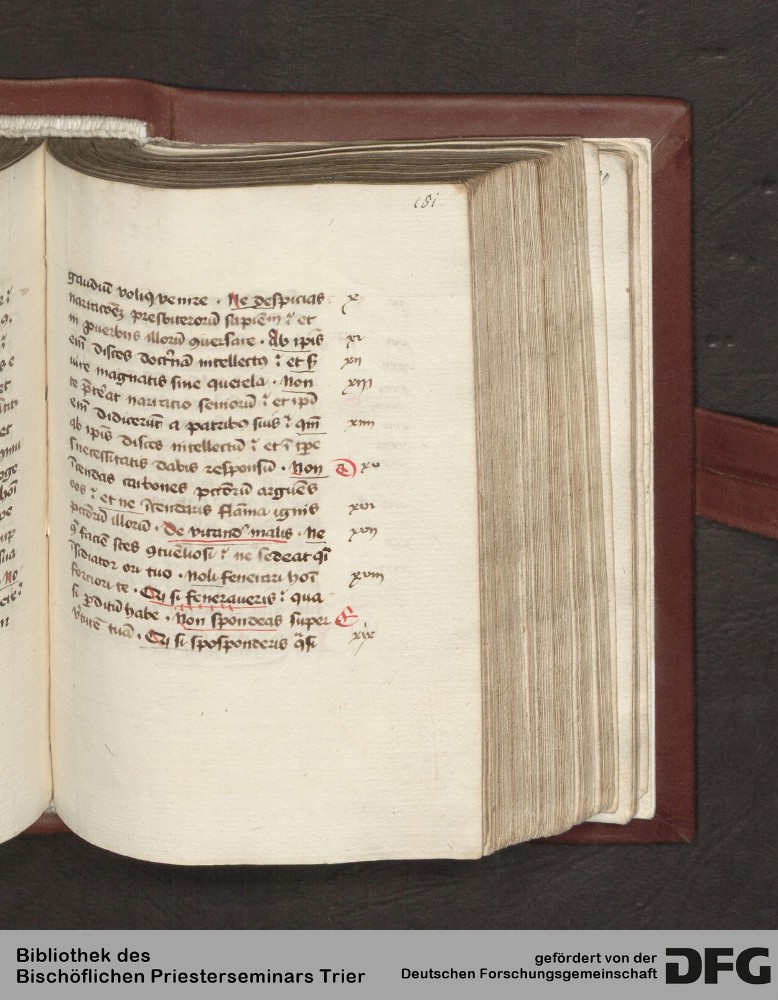 181
gaudiū voliq venire . Ne despicias x
narracoēz presbiterorū sapiēm ⁊ et
in ꝓverbiis illorū ꝯversare . Ab ipis xi
eī disces doctrinā intellectꝯ ⁊ et ẜ xii
uire magnatis sine querela . Non xiii
te p̄tereat narratio seniorū ⁊ et ipī
eī didicerūt a patribꝯ suis ⁊ qm̄ xiiii
ab ipis disces intellectū ⁊ et ī tpe
necessitatis dabis responsū . Non xv
īcendas carbones pctōrū arguēs
eos ⁊ et ne īcendaris flāma ignis xvi
pctōrū illorū . De vitand malis . Ne xvii
faciē stes ꝯtuēliosi ⁊ ne sedeat qi
īsidiator ori tuo . Noli fenerari hoī xviii
forciori te . Qi si feneraveris ⁊ qua
si ꝑditū habe . Non spondeas super
vtutē tuā . Qi si sposponderis qsi xix
Bibliothek des
Bischöflichen Priesterseminars Trier
gefördert von der
Deutschen Forschungsgemeinschaft
DFG